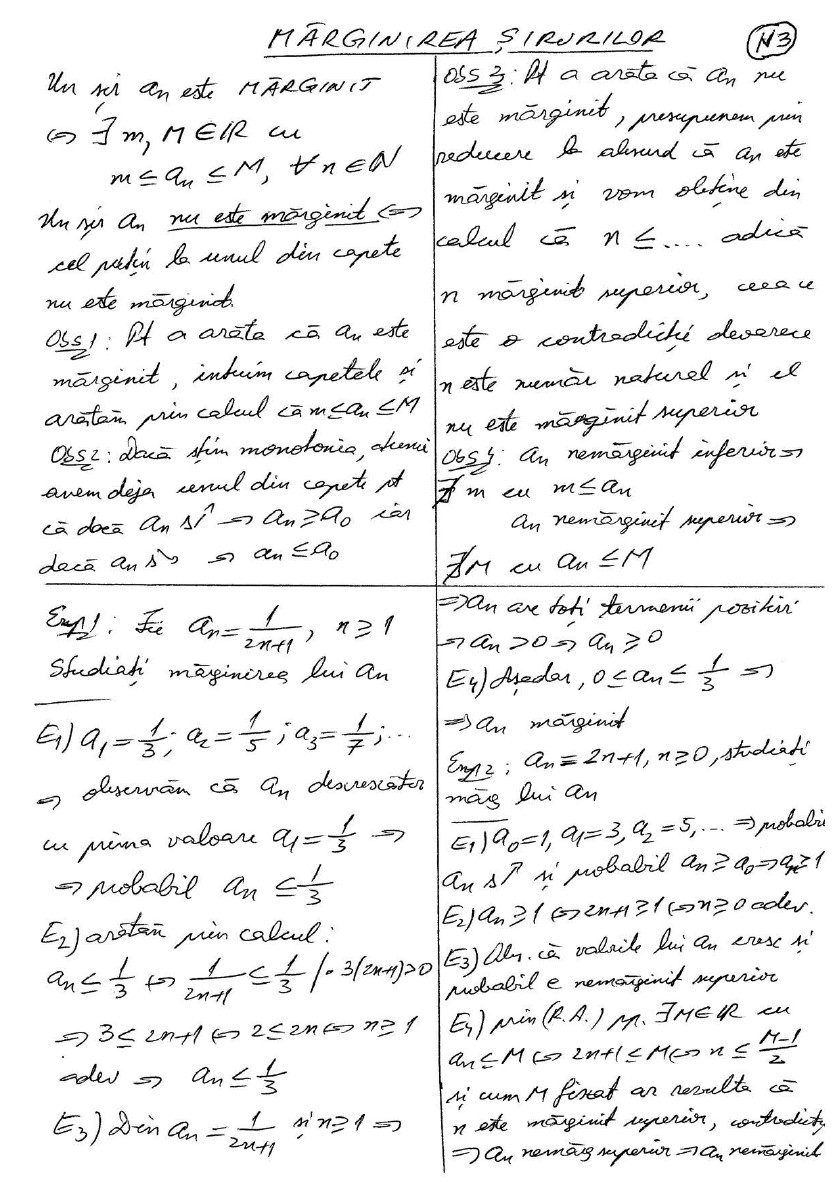 MĂRGINIREA ȘIRURILOR
N3
Un șir an este MĂRGINIT
⇔ ∃ m, M ∈ ℝ cu
m ≤ an ≤ M, ∀ n ∈ ℕ
Un șir an nu este mărginit ⇔
cel puțin la unul din capete
nu este mărginit.
Obs1: Pt a arăta că an este
mărginit, intuim capetele și
arătăm prin calcul că m ≤ an ≤ M
Obs2: Dacă știm monotonia, atunci
avem deja unul din capete pt
că dacă an s↗ ⇒ an ≥ a0 iar
dacă an s↘ ⇒ an ≤ a0
Obs 3: Pt a arăta că an nu
este mărginit, presupunem prin
reducere la absurd că an este
mărginit și vom obține din
calcul că n ≤ .... adică
n mărginit superior, ceea ce
este o contradicție deoarece
n este număr natural și el
nu este mărginit superior
Obs4: an nemărginit inferior ⇒
∄ m cu m ≤ an
an nemărginit superior ⇒
∄ M cu an ≤ M
Exp1: Fie an = 1/(2n+1), n ≥ 1
Studiați mărginirea lui an
E1) a1 = 1/3; a2 = 1/5; a3 = 1/7; ...
⇒ observăm că an descrescător
cu prima valoare a1 = 1/3 ⇒
⇒ probabil an ≤ 1/3
E2) arătăm prin calcul:
an ≤ 1/3 ⇔ 1/(2n+1) ≤ 1/3 /· 3(2n+1)>0
⇒ 3 ≤ 2n+1 ⇔ 2 ≤ 2n ⇔ n ≥ 1
adev ⇒ an ≤ 1/3
E3) Din an = 1/(2n+1) și n ≥ 1 ⇒
⇒ an are toți termenii pozitivi
⇒ an > 0 ⇒ an ≥ 0
E4) Așadar, 0 ≤ an ≤ 1/3 ⇒
⇒ an mărginit
Exp2: an = 2n+1, n ≥ 0, studiați
mărg lui an
E1) a0=1, a1=3, a2=5, ... ⇒ probabil
an s↗ și probabil an ≥ a0 ⇒ an ≥ 1
E2) an ≥ 1 ⇔ 2n+1 ≥ 1 ⇔ n ≥ 0 adev.
E3) Obs. că valorile lui an cresc și
probabil e nemărginit superior
E4) prin (R.A.) pp. ∃ M ∈ ℝ cu
an ≤ M ⇔ 2n+1 ≤ M ⇔ n ≤ (M-1)/2
și cum M fixat ar rezulta că
n este mărginit superior, contradicție
⇒ an nemărg superior ⇒ an nemărginit